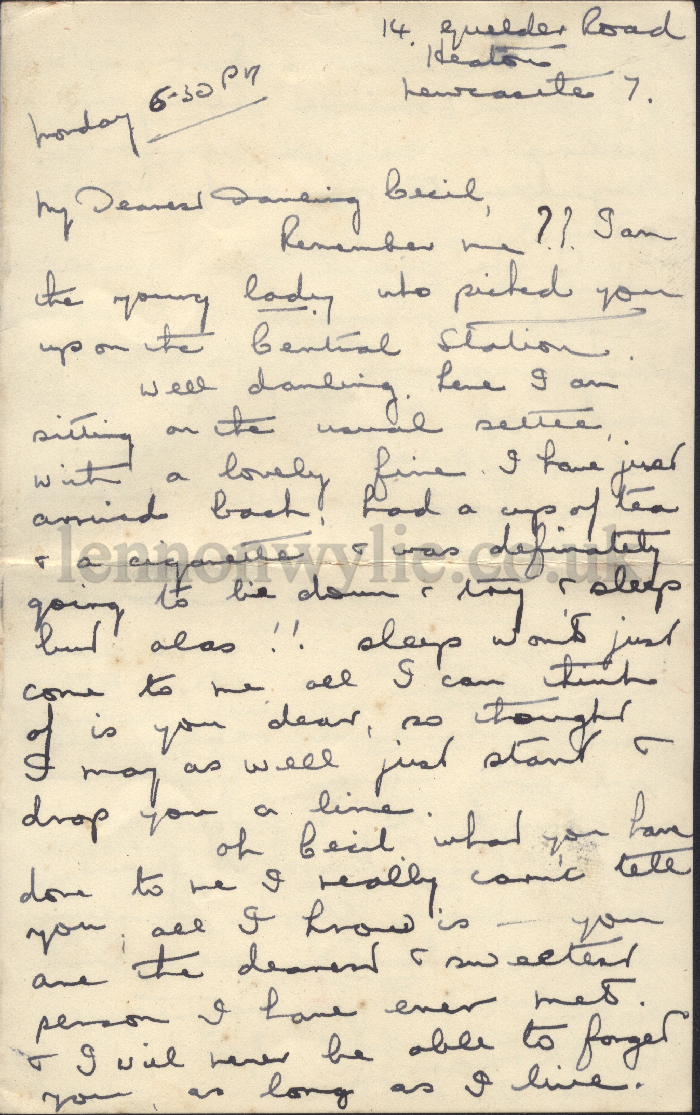 14. Guelder Road
Heaton
Newcastle 7.
Monday 6-30 PM
My Dearest Darling Cecil,
Remember me ?? I am
the young lady who picked you
up on the Central Station.
Well darling, here I am
sitting on the usual settee,
with a lovely fire. I have just
arrived back, had a cup of tea
& a cigarette, & was definately
going to lie down & try & sleep
but alas !! sleep won't just
come to me all I can think
of is you dear, so thought
I may as well just start &
drop you a line.
Oh Cecil what you have
done to me I really can't tell
you, all I know is — you
are the dearest & sweetest
person I have ever met.
& I will never be able to forget
you, as long as I live.
lennonwylie.co.uk